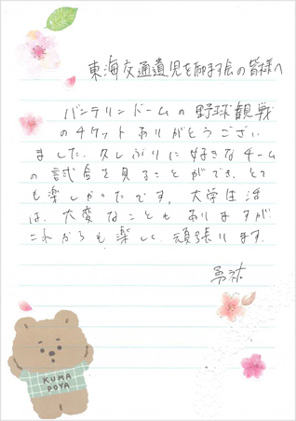 東海交通遺児を励ます会の皆様へ
バンテリンドームの野球観戦
のチケットありがとうござい
ました。久しぶりに好きなチーム
の試合を見ることができ、とて
も楽しかったです。大学生活
は、大変なこともありますが
これからも楽しく、頑張ります。
KUMA
POYA